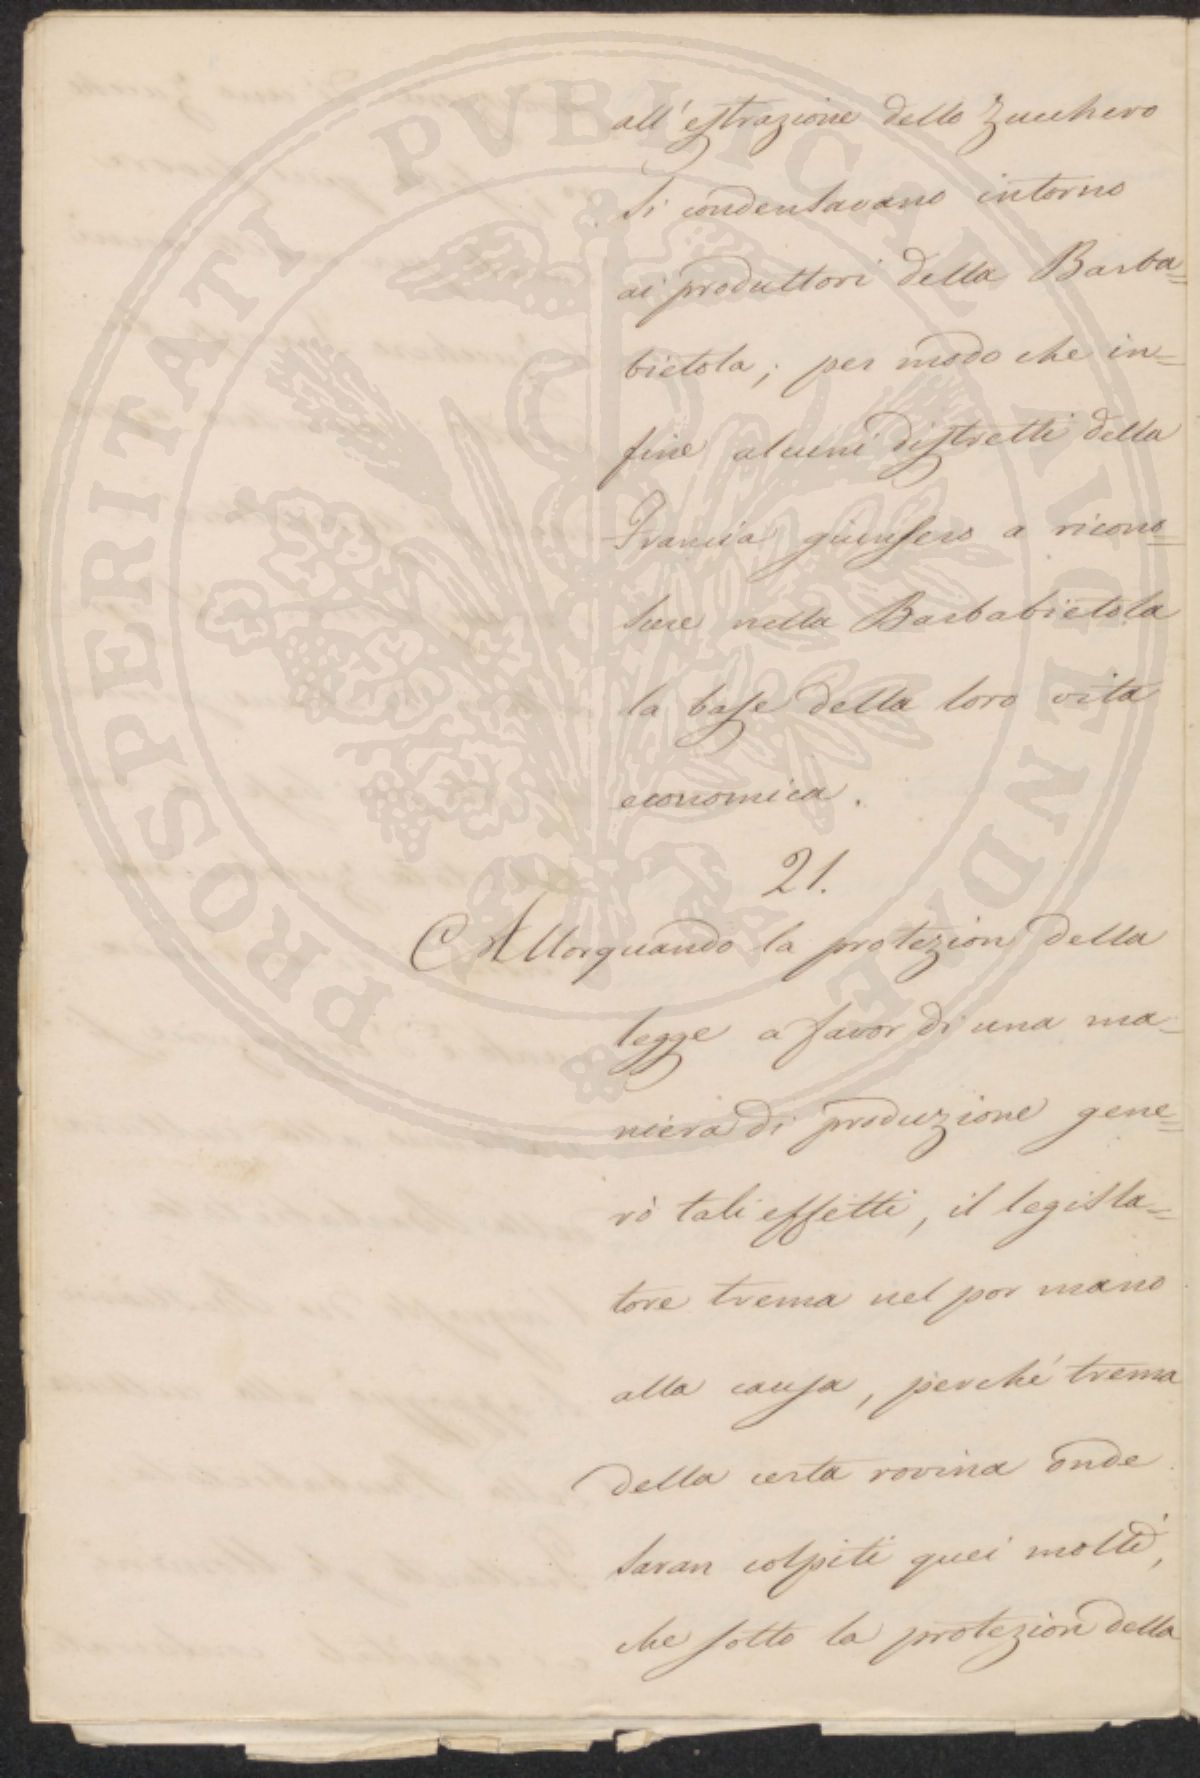 all'estrazione dello Zucchero
si condensavano intorno
ai produttori della Barba=
bietola; per modo che in=
fine alcuni distretti della
Francia giunsero a ricono=
scere nella Barbabietola
la base della loro vita
economica.
21.
Allorquando la protezion della
legge a favor di una ma=
niera di produzione gene=
rò tali effetti, il legisla=
tore trema nel por mano
alla causa, perché trema
della certa rovina onde
saran colpiti quei molti,
che sotto la protezion della
PROSPERITATI PVBLICAE AVGENDAE